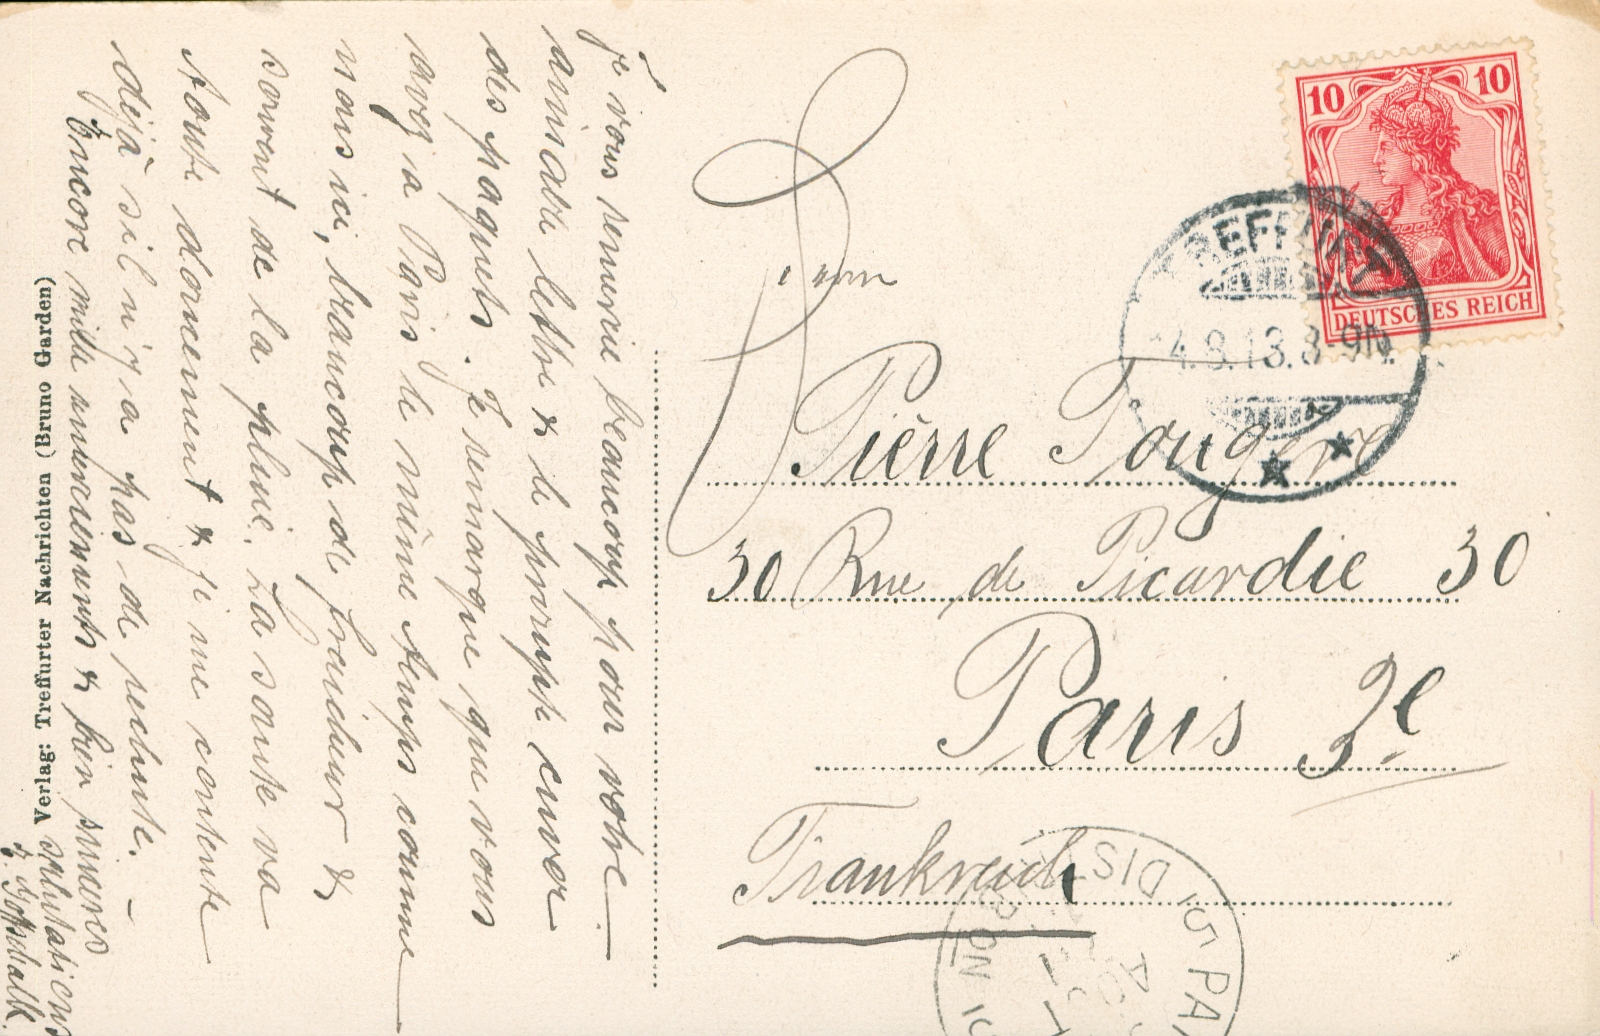 Je vous remercie beaucoup pour votre
aimable lettre & le prompt envoi
des paquets. Je remarque que vous
avez a Paris le même temps comme
nous ici, beaucoup de fraicheur &
souvent de la pluie. La santé va
toute doucement & je me contente
déjà s'il n'y a pas de rechute. –
Encore mille remerciements & bien sincères
salutations
Gottschalk
Verlag: Treffurter Nachrichten (Bruno Garden)
10 10
DEUTSCHES REICH
TREFFURT
14.8.13.8-9N.
Pièrre Fougère
30 Rue de Picardie 30
Paris 3e
Frankreich
DISTRIBON
PA